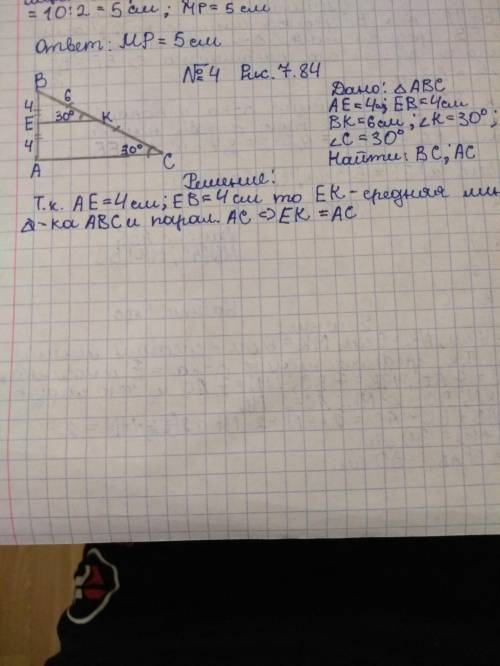 = 10:2 = 5 см ; МР = 5 см
Ответ: МР = 5 см
№4 Рис. 7.84
B
4
6
E
30°
K
4
30°
A
C
Дано: △ABC
AE=4м; EB=4см
BK=6см; ∠K=30°;
∠C=30°
Найти: BC; AC
Решение:
Т.к. AE=4см; EB=4см то EK-средняя лин
△-ка ABC и парал. AC <=> EK = AC